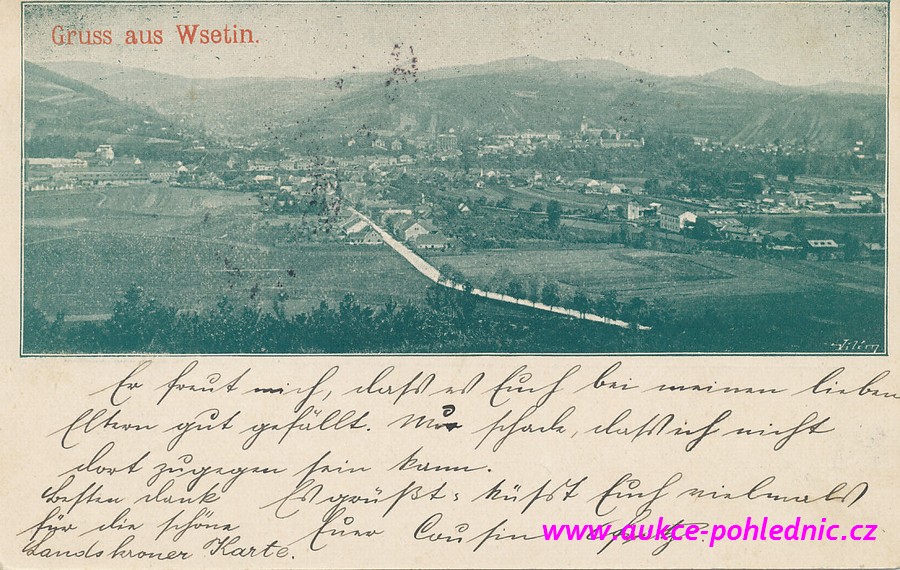 Gruss aus Wsetin.
Er freut mich, dass es Euch bei meinen lieben
Eltern gut gefällt. Nur schade, dass ich nicht
dort zugegen sein kann.
Es grüßt & küsst Euch vielmals
Euer Cousin
besten dank
für die schöne
Landskroner Karte.
www.aukce-pohlednic.cz